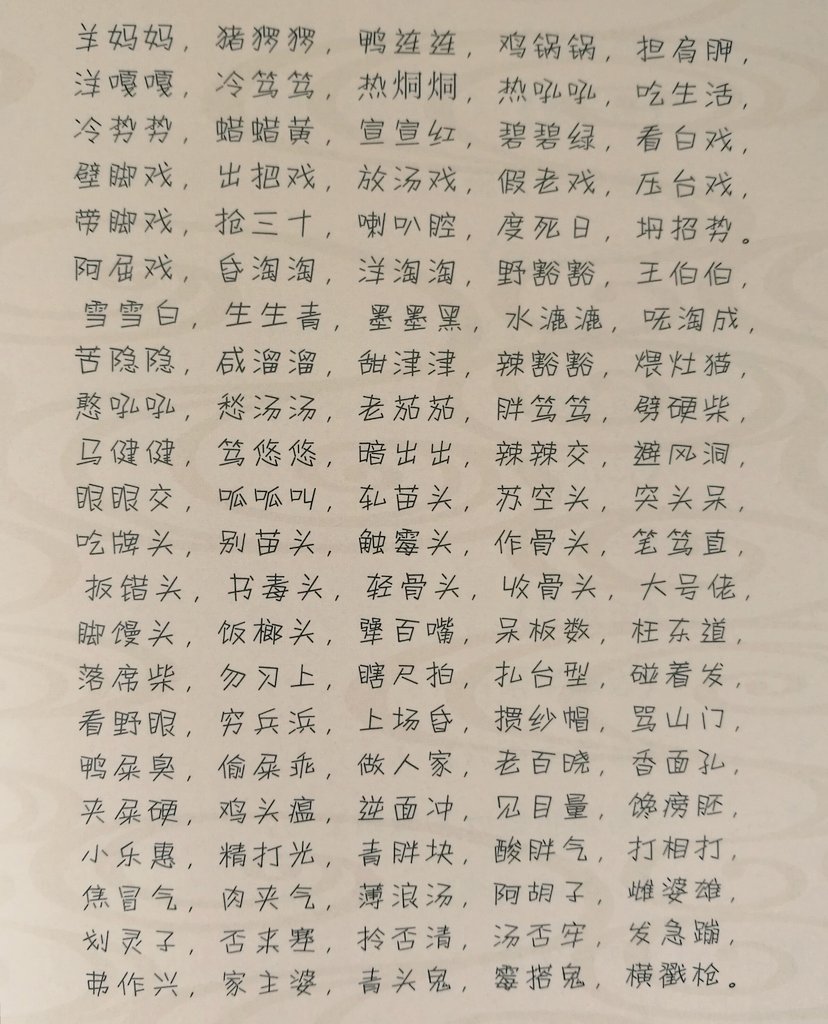 羊妈妈，猪猡猡，鸭连连，鸡锅锅，担肩胛，
洋嘎嘎，冷笃笃，热炯炯，热吼吼，吃生活，
冷势势，蜡蜡黄，宣宣红，碧碧绿，看白戏，
壁脚戏，出把戏，放汤戏，假老戏，压台戏，
带脚戏，抢三十，喇叭腔，度死日，坍招势。
阿屈戏，昏淘淘，洋淘淘，野豁豁，王伯伯，
雪雪白，生生青，墨墨黑，水漉漉，呒淘成，
苦隐隐，咸溜溜，甜津津，辣豁豁，煨灶猫，
憨吼吼，愁汤汤，老茄茄，胖笃笃，劈硬柴，
马健健，笃悠悠，暗出出，辣辣交，避风洞，
眼眼交，呱呱叫，轧苗头，苏空头，突头呆，
吃牌头，别苗头，触霉头，作骨头，笔笃直，
扳错头，书毒头，轻骨头，收骨头，大号佬，
脚馒头，饭榔头，犟百嘴，呆板数，枉东道，
落席柴，勿习上，瞎尺拍，扎台型，碰着发，
看野眼，穷兵浜，上场昏，掼纱帽，骂山门，
鸭屎臭，偷屎乖，做人家，老百晓，香面孔，
夹屎硬，鸡头瘟，逆面冲，见目量，馋痨胚，
小乐惠，精打光，青胖块，酸胖气，打相打，
焦冒气，肉夹气，薄浪汤，阿胡子，雌婆雄，
划灵子，否来塞，拎否清，汤否牢，发急蹦，
弗作兴，家主婆，青头鬼，霉搭鬼，横戳枪。